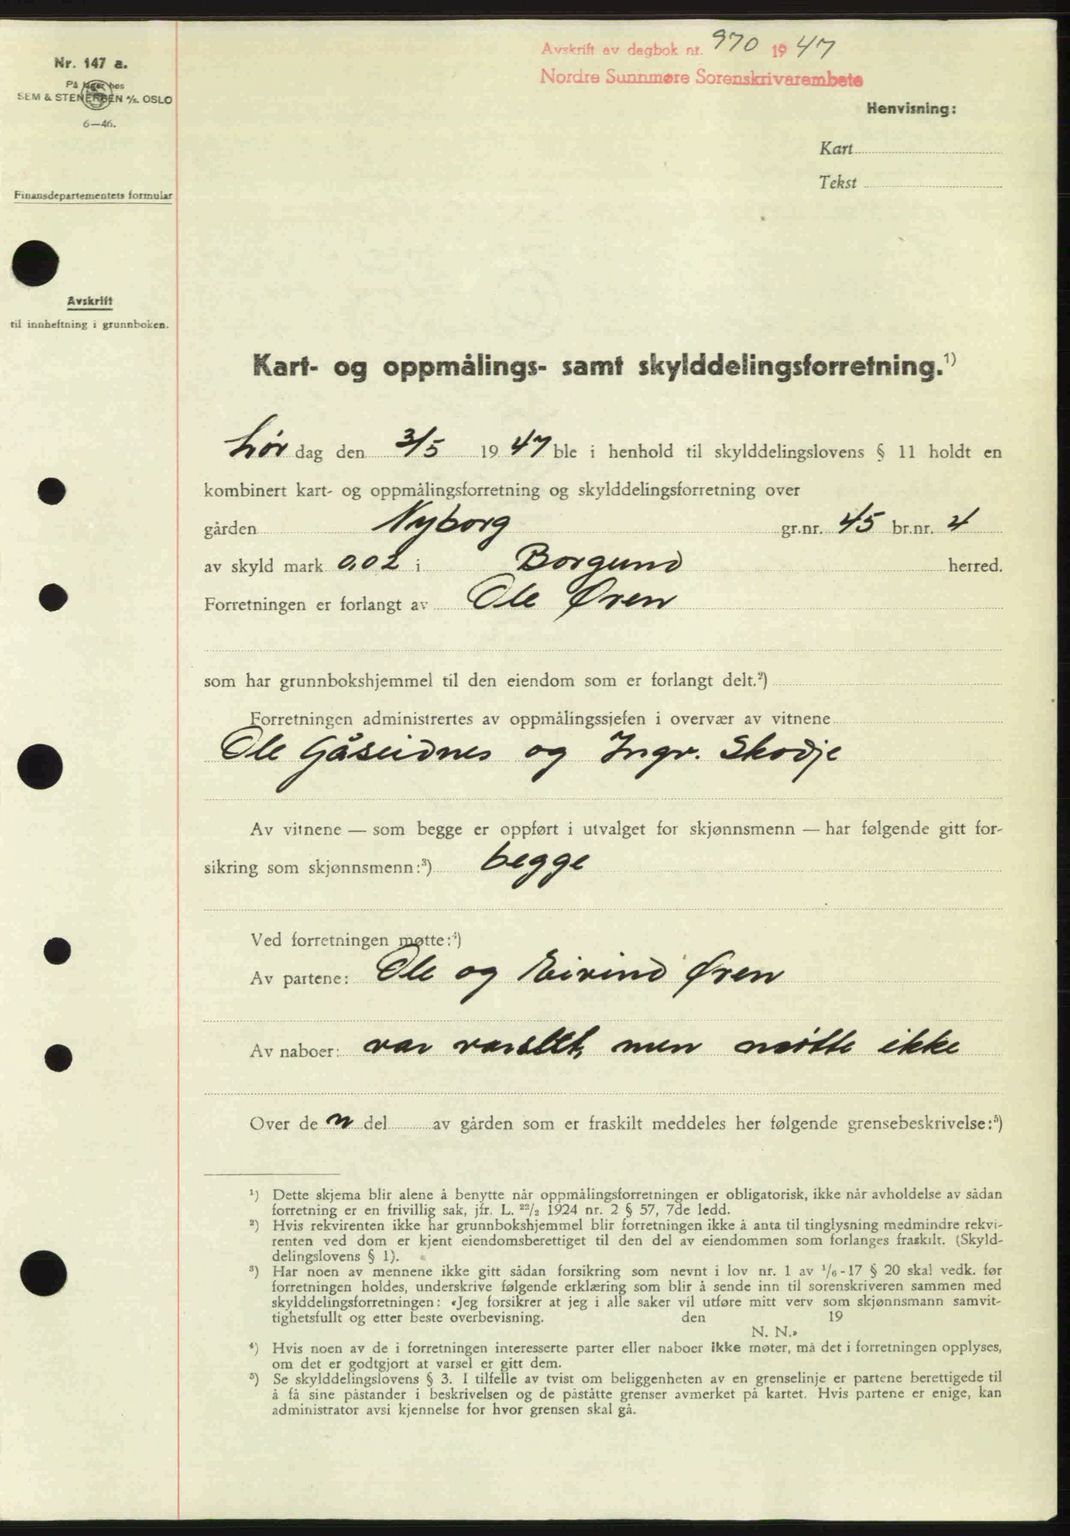 Avskrift av dagbok nr. 970 1947
Nordre Sunnmøre Sorenskriverembete
Nr. 147 a.
På lager hos
SEM & STENERSEN A/S. OSLO
6—46.
Henvisning:
Kart
Tekst
Finansdepartementets formular
Avskrift
til innheftning i grunnboken.
Kart- og oppmålings- samt skylddelingsforretning.¹)
Lør dag den 3/5 1947 ble i henhold til skylddelingslovens § 11 holdt en
kombinert kart- og oppmålingsforretning og skylddelingsforretning over
gården Nyborg gr.nr. 45 br.nr. 4
av skyld mark 0,02 i Borgund herred.
Forretningen er forlangt av Ole Øren
som har grunnbokshjemmel til den eiendom som er forlangt delt.²)
Forretningen administrertes av oppmålingssjefen i overvær av vitnene
Ole Gåseidnes og Ingv. Skodje
Av vitnene — som begge er oppført i utvalget for skjønnsmenn — har følgende gitt for-
sikring som skjønnsmenn:³) begge
Ved forretningen møtte:⁴)
Av partene: Ole og Eivind Øren
Av naboer: var varslet, men møtte ikke
Over de n del av gården som er fraskilt meddeles her følgende grensebeskrivelse:⁵)
¹) Dette skjema blir alene å benytte når oppmålingsforretningen er obligatorisk, ikke når avholdelse av sådan
forretning er en frivillig sak, jfr. L. 22/2 1924 nr. 2 § 57, 7de ledd.
²) Hvis rekvirenten ikke har grunnbokshjemmel blir forretningen ikke å anta til tinglysning medmindre rekvi-
renten ved dom er kjent eiendomsberettiget til den del av eiendommen som forlanges fraskilt. (Skyld-
delingslovens § 1).
³) Har noen av mennene ikke gitt sådan forsikring som nevnt i lov nr. 1 av 1/6-17 § 20 skal vedk. før
forretningen holdes, underskrive følgende erklæring som blir å sende inn til sorenskriveren sammen med
skylddelingsforretningen: «Jeg forsikrer at jeg i alle saker vil utføre mitt verv som skjønnsmann samvit-
tighetsfullt og etter beste overbevisning. den 19
N. N.»
⁴) Hvis noen av de i forretningen interesserte parter eller naboer ikke møter, må det i forretningen opplyses,
om det er godtgjort at varsel er gitt dem.
⁵) Se skylddelingslovens § 3. I tilfelle av tvist om beliggenheten av en grenselinje er partene berettigede til
å få sine påstander i beskrivelsen og de påståtte grenser avmerket på kartet. Hvis partene er enige, kan
administrator avsi kjennelse for hvor grensen skal gå.